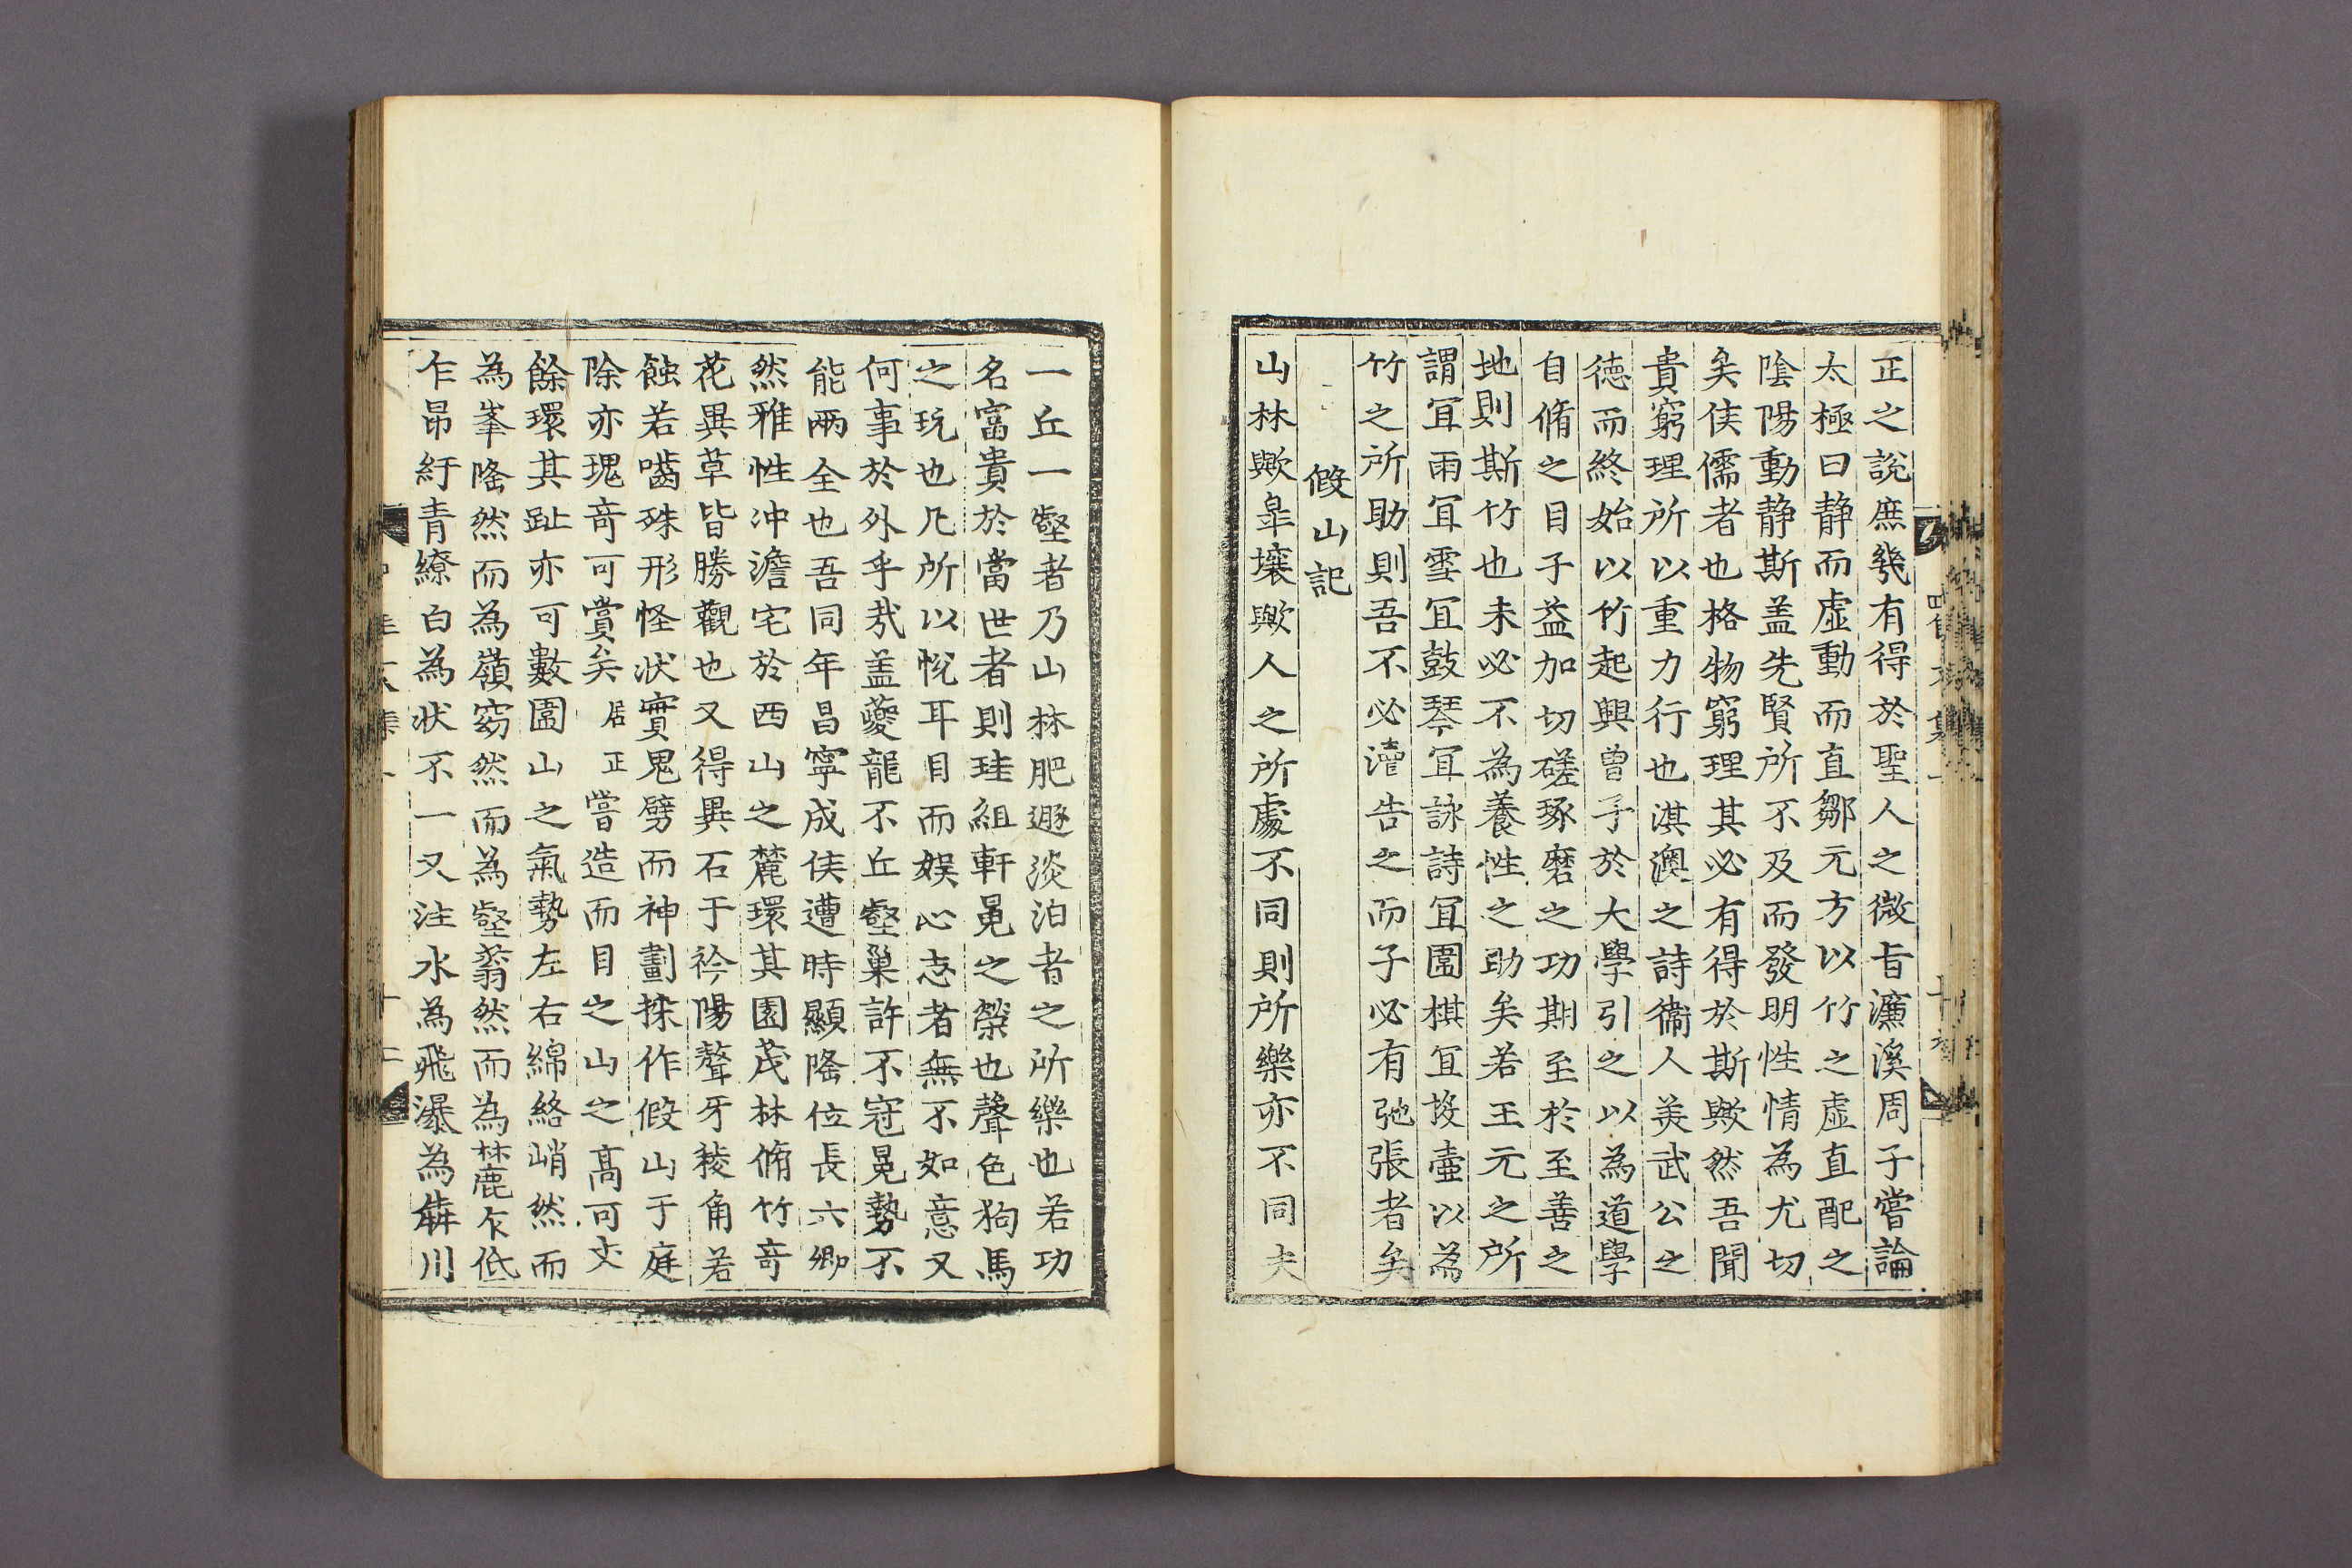 正之說庶幾有得於聖人之微旨濂溪周子嘗論
太極曰静而虛動而直鄒元方以竹之虛直配之
陰陽動静斯盖先賢所不及而發明性情為尤切
矣侯儒者也格物窮理其必有得於斯歟然吾聞
貴窮理所以重力行也淇澳之詩衛人美武公之
德而終始以竹起興曾子於大學引之以為道學
自脩之目子益加切磋琢磨之功期至於至善之
地則斯竹也未必不為養性之助矣若王元之所
謂冝雨冝雪冝鼓琴冝詠詩冝圍棋冝投壷以為
竹之所助則吾不必瀆告之而子必有弛張者矣
假山記
山林歟皐壤歟人之所處不同則所樂亦不同夫
一丘一壑者乃山林肥遯淡泊者之所樂也若功
名富貴於當世者則珪組軒冕之榮也聲色狗馬
之玩也凡所以悅耳目而娛心志者無不如意又
何事於外乎㢤盖夔龍不丘壑巢許不冠冕勢不
能兩全也吾同年昌寧成侯遭時顯隆位長六卿
然雅性沖澹宅於西山之麓環其園茂林脩竹竒
花異草皆勝觀也又得異石于衿陽聱牙稜角若
蝕若嚙殊形怪状實鬼劈而神劃採作假山于庭
除亦瑰竒可賞矣居正嘗造而目之山之高可丈
餘環其趾亦可數圍山之氣勢左右綿絡峭然而
為峯隆然而為嶺窈然而為壑蓊然而為麓乍低
乍昂紆青繚白為状不一又注水為飛瀑為犇川